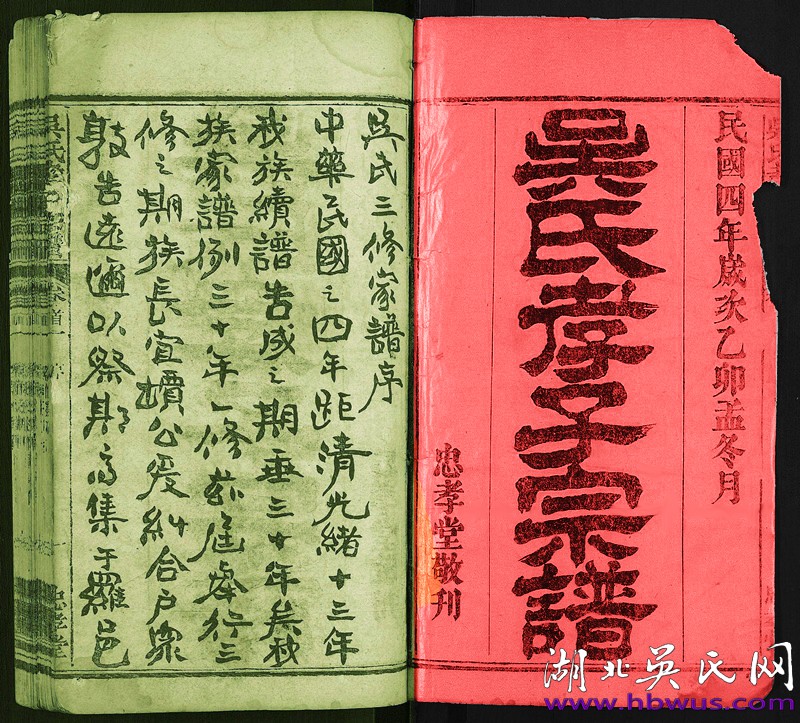 民國四年歲次乙卯孟冬月
吳氏孝子宗譜
忠孝堂敬刊
吳氏三修家譜序
中華民國之四年距清光緒十三年
我族續譜告成之期垂三十年矣我
族家譜例三十年一修茲屆舉行三
修之期族長宜壎公爰糾合戶眾
敦告遠邇以祭期齊集于羅邑
忠孝堂
湖北吴氏网
www.hbwus.com